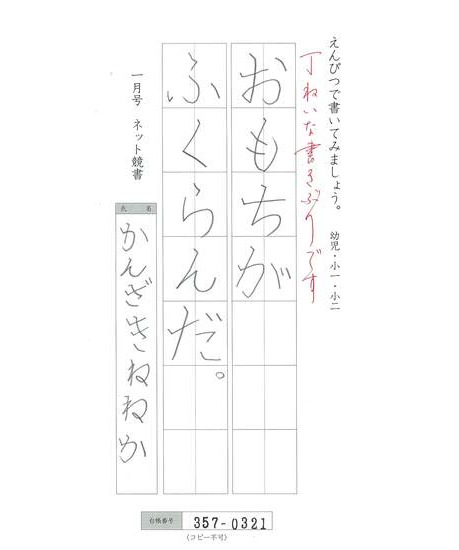 えんぴつで書いてみましょう。 幼児・小一・小二
丁ねいな書きぶりです
おもちが
ふくらんだ。
一月号 ネット競書
氏名
かんざきねねか
台帳番号 357-0321
(コピー不可)